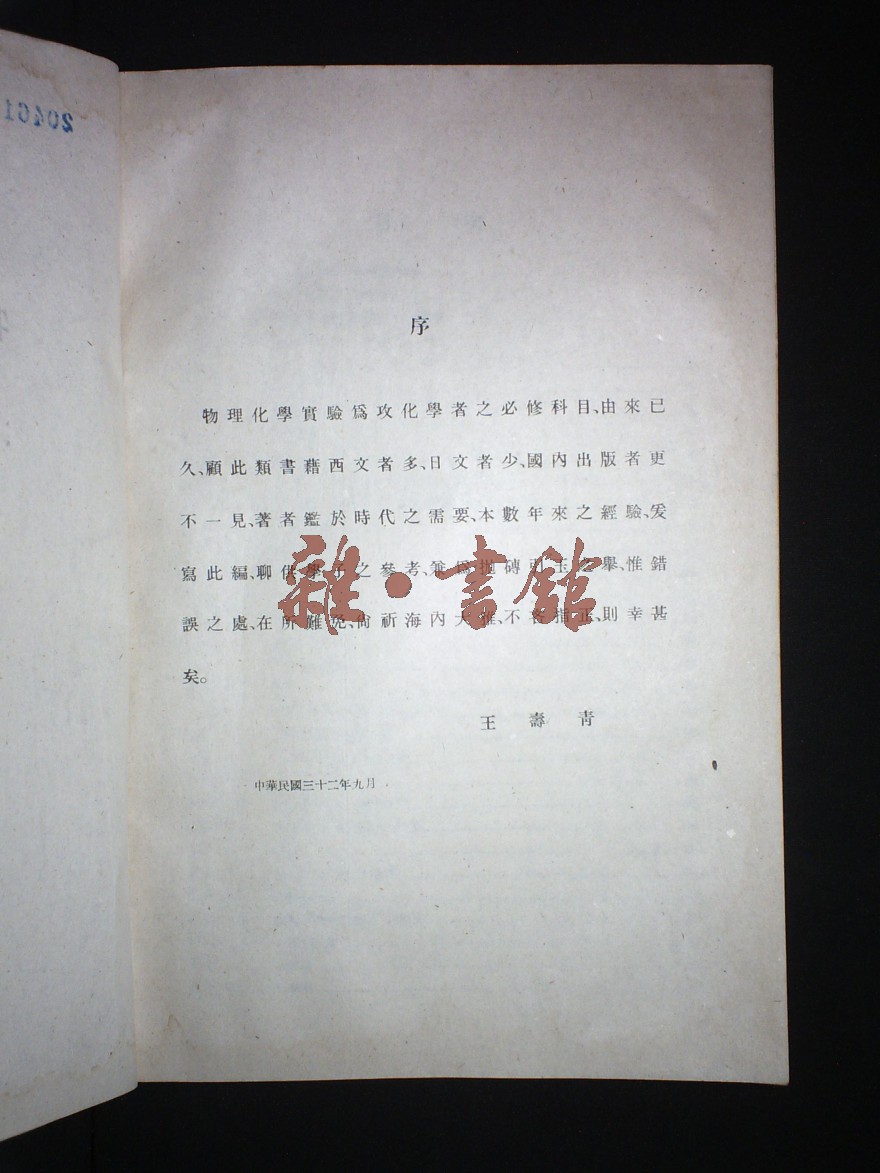 序
物理化學實驗爲攻化學者之必修科目、由來已
久、顧此類書藉西文者多、日文者少、國內出版者更
不一見、著者鑑於時代之需要、本數年來之經驗、爰
寫此編、聊供學子之參考、兼爲拋磚引玉之舉、惟錯
誤之處、在所難免、尙祈海內大雅、不吝指正、則幸甚
矣。
王壽靑
中華民國三十二年九月
雜·書館